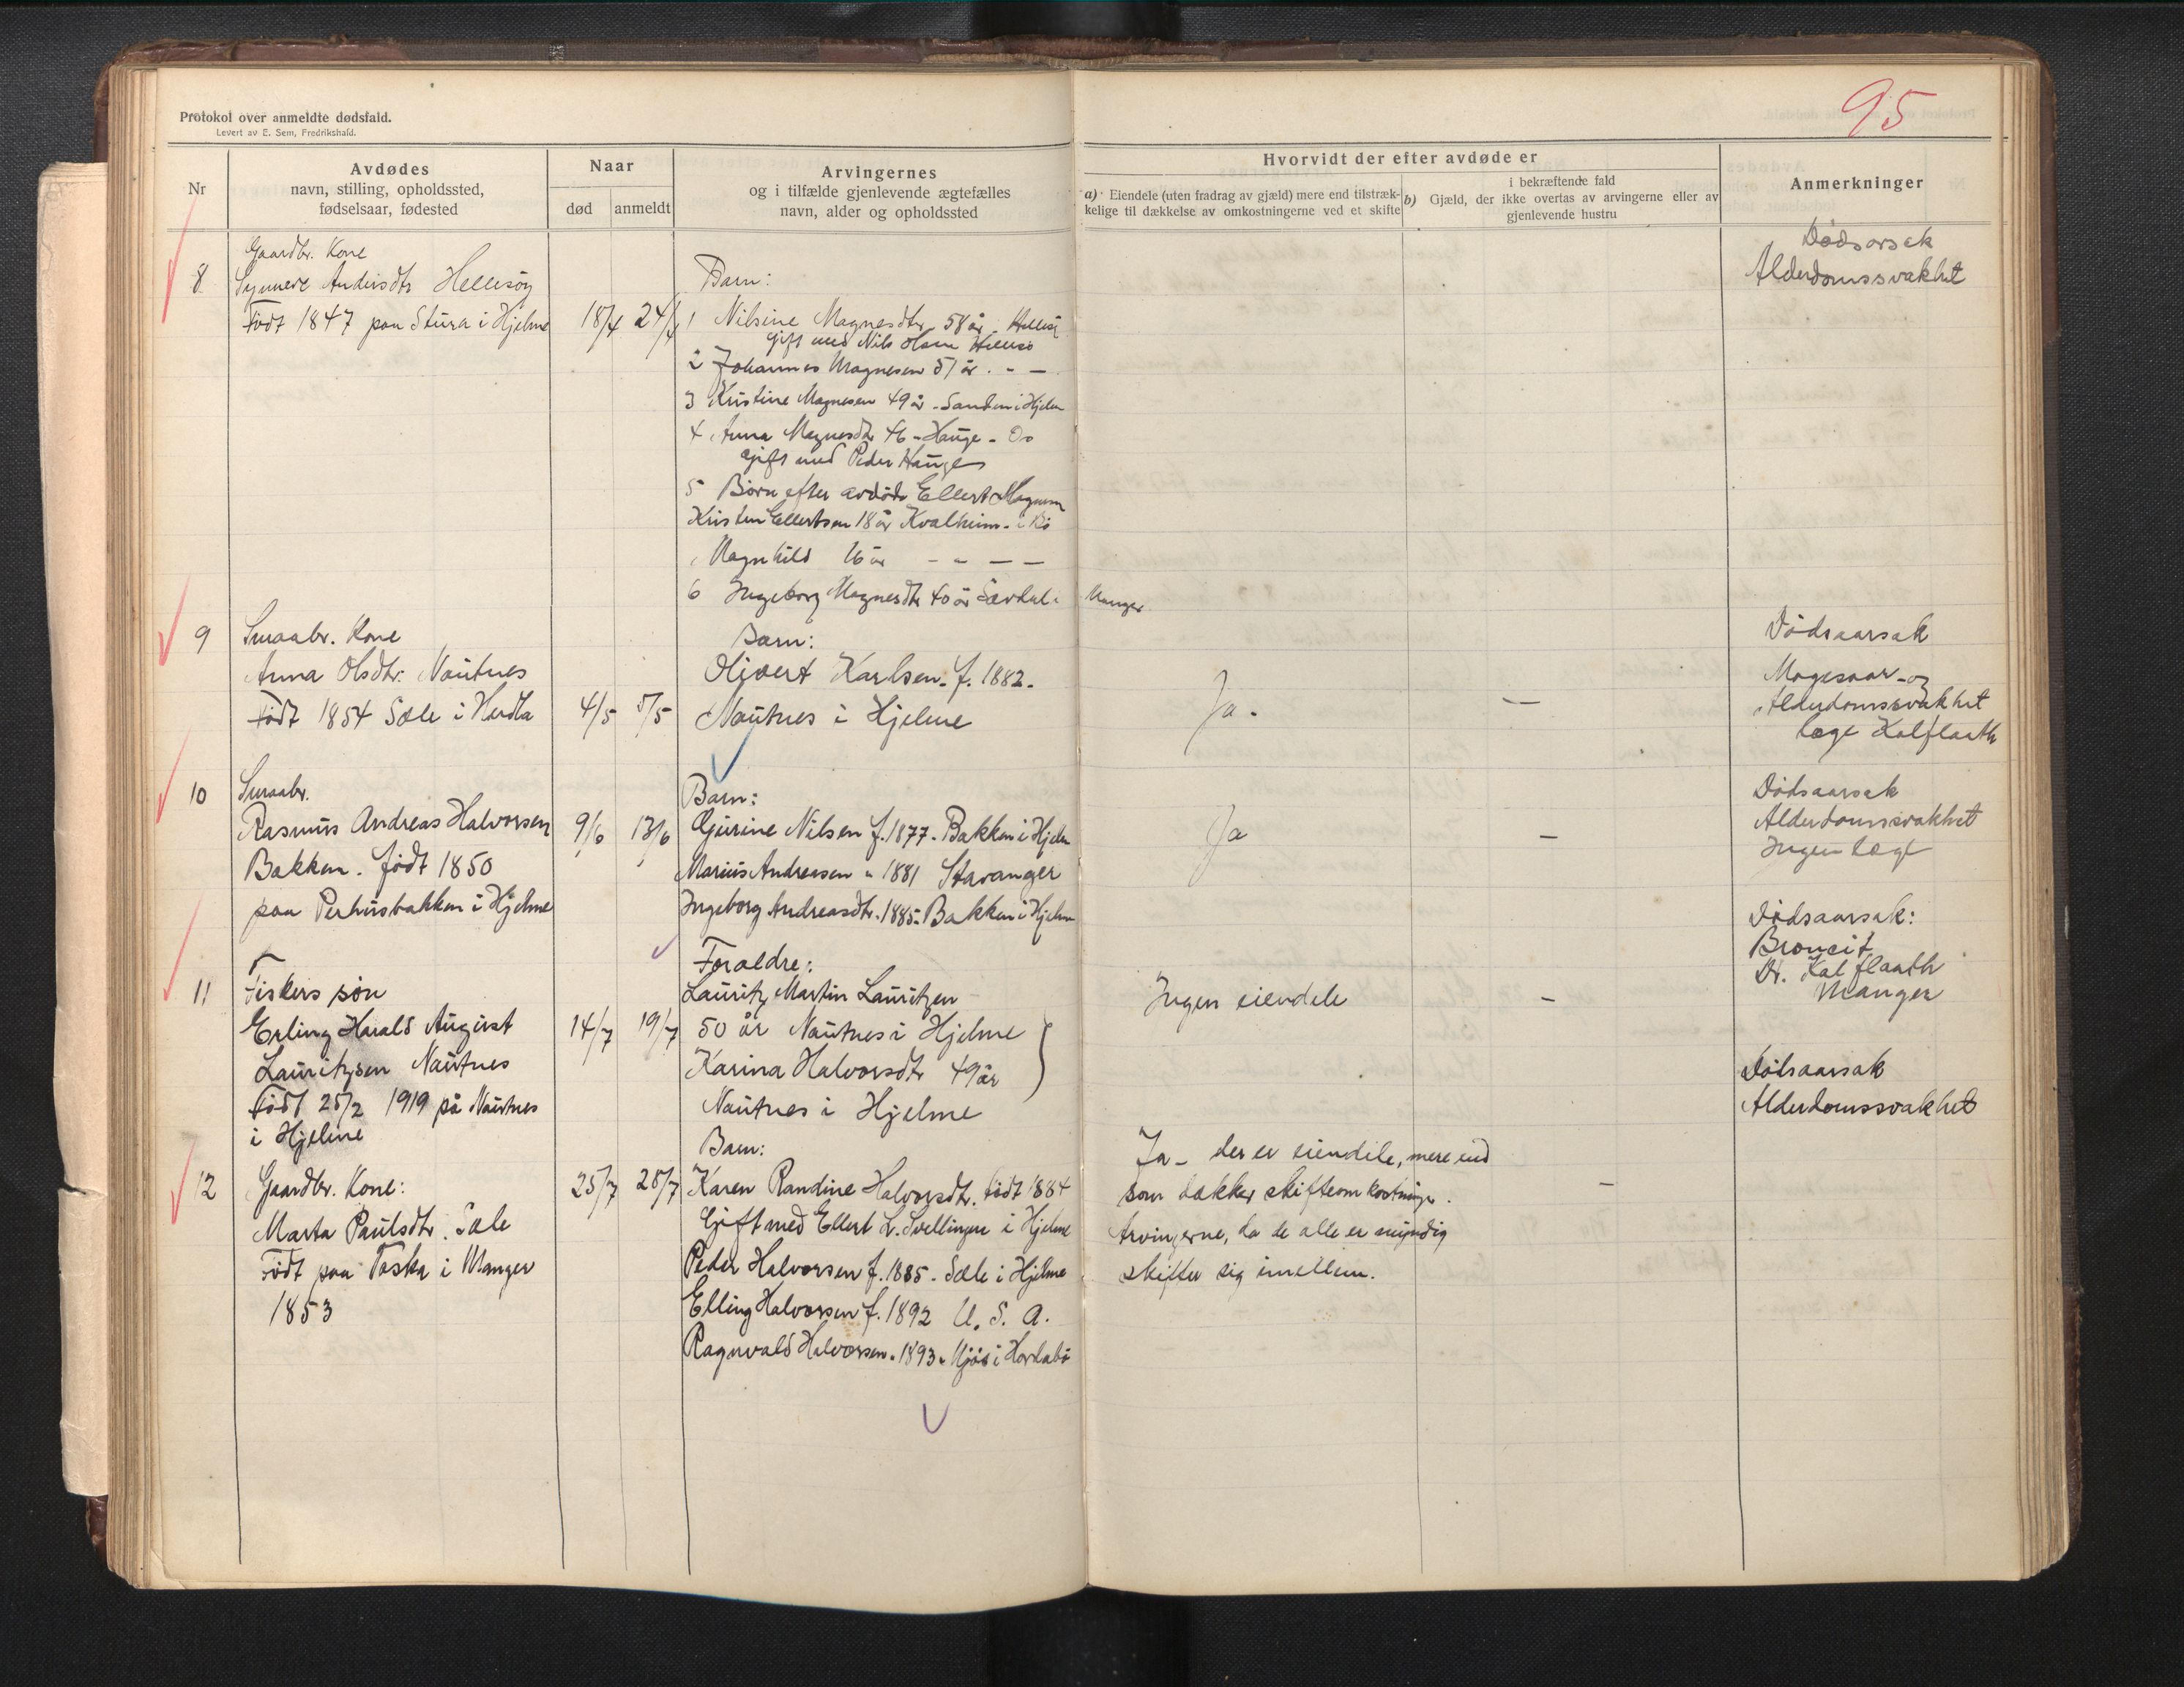 Protokol over anmeldte dødsfald.
Levert av E. Sem, Fredrikshald.
95
Nr
Avdødes
navn, stilling, opholdssted,
fødselsaar, fødested
Naar
død
anmeldt
Arvingernes
og i tilfælde gjenlevende ægtefælles
navn, alder og opholdssted
Hvorvidt der efter avdøde er
a) Eiendele (uten fradrag av gjæld) mere end tilstræk-
kelige til dækkelse av omkostningerne ved et skifte
i bekræftende fald
b) Gjæld, der ikke overtas av arvingerne eller av
gjenlevende hustru
Anmerkninger
8
Gaardbr. Kone
Synneve Andersdtr Hellesøy
Født 1847 paa Stura i Hjelme
18/4 24/4
Barn:
1 Nilsine Magnesdtr 58 år
gift med Nils Olsen Hellesø
2 Johannes Magnesen 51 år. - —
3 Kristine Magnesen 49 år - Sanden i Hjelm
4 Anna Magnesdtr 46 - Hauge - Do
gift med Peder Hauge
5 Børn efter avdøde Ellert Magnesen
Kristen Ellertsen 18 år Kvalheim - i Bø
Magnhild 16 år - - — —
6 Ingeborg Magnesdtr 40 år Sævdal.
Manger
Dødsorsak
Alderdomssvakhet
9
Smaabr. Kone
Anna Olsdtr. Nautnes
Født 1854 Sæle i Herdla
4/5 5/5
Barn:
Olivert Karlsen. f. 1882.
Nautnes i Hjelme
Ja. —
Dødsaarsak
Magesaar - og
Alderdomssvakhet
læge Kalflaath
10
Smaabr.
Rasmus Andreas Halvorsen
Bakken. født 1850
paa Perhusbakken i Hjelme
9/6 13/6
Barn:
Gurine Nilsen f. 1877. Bakken i Hjelm
Marius Andreasen " 1881 Stavanger
Ingeborg Andreasdtr. 1885. Bakken i Hjelm
Ja —
Dødsaarsak
Alderdomssvakhet
Ingen læge
11
Fiskers søn
Erling Harald August
Lauritzsen Nautnes
Født 25/2 1919 på Nautnes
i Hjelme
14/7 19/7
Foraeldre:
Lauritz Martin Lauritzen
50 år Nautnes i Hjelme
Karina Halvorsdtr 49 år
Nautnes i Hjelme
Ingen eiendele —
Dødsaarsak:
Broncit
Dr. Kalflaath
Manger
12
Gaardbr. Kone:
Marta Paulsdtr. Sæle
Født paa Toska i Manger
1853
25/7 28/7
Barn:
Karen Randine Halvorsdtr. født 1884
Gift med Ellert L. Svellingen i Hjelme
Peder Halvorsen f. 1885. Sæle i Hjelme
Elling Halvorsen f. 1892 U. S. A.
Ragnvald Halvorsen " 1893 " Mjøs i Hordabø
Ja - der er eiendele, mere end
som dækker skifteomkostninge. —
Arvingerne, da de alle er myndig
skifter sig imellem.
Dødsaarsak
Alderdomssvakhet